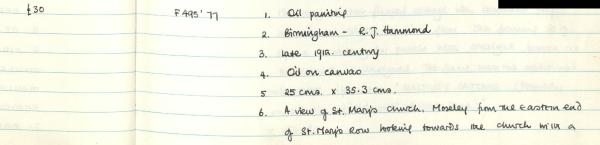 £30 F495'77 1. Oil painting
2. Birmingham - R.J. Hammond
3. late 19th. century
4. Oil on canvas
5 25 cms. x 35.3 cms.
6. A view of St. Mary's church, Moseley from the Eastern end
of St. Mary's Row looking towards the church with a